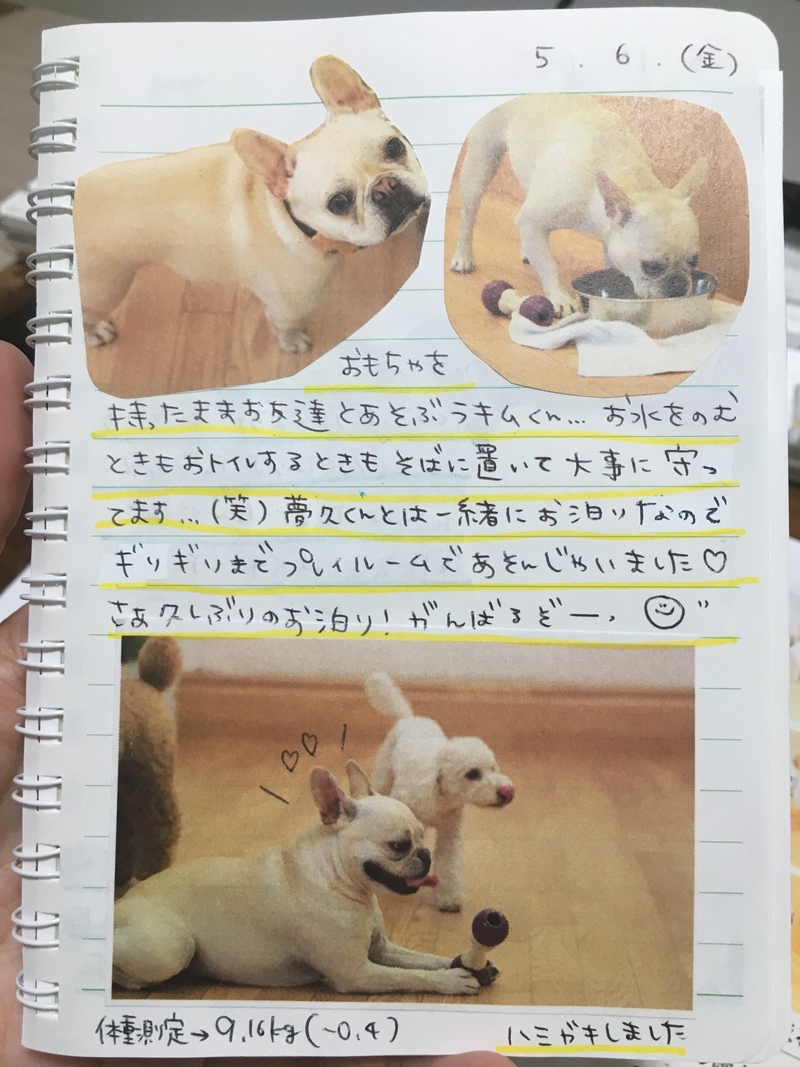 5.6.(金)
おもちゃを
持ったままお友達とあそぶラキムくん… お水をのむ
ときもおトイレするときもそばに置いて大事に守っ
てます…(笑)夢久くんとは一緒にお泊りなので
ギリギリまでプレイルームであそんじゃいました♡
さあ久しぶりのお泊り!がんばるぞー、
体重測定→9.16kg(-0.4)
ハミガキしました